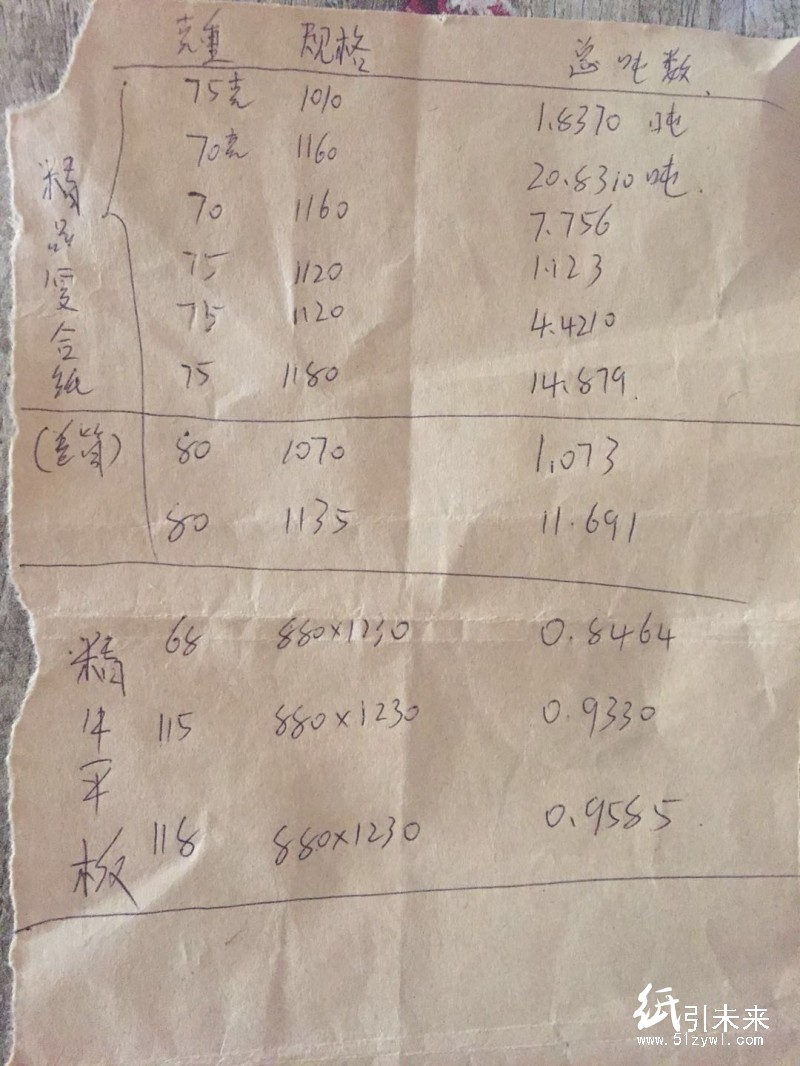 克重 规格 总吨数
75克 1010 1.8370 吨
70克 1160 20.8310 吨.
70 1160 7.756
75 1120 1.123
75 1120 4.4210
75 1180 14.879.
精品复合纸
(卷筒) 80 1070 1.073
80 1135 11.691
68 880×1230 0.8464
115 880×1230 0.9330
118 880×1230 0.9585.
精牛平板
纸引未来
www.51zywl.com